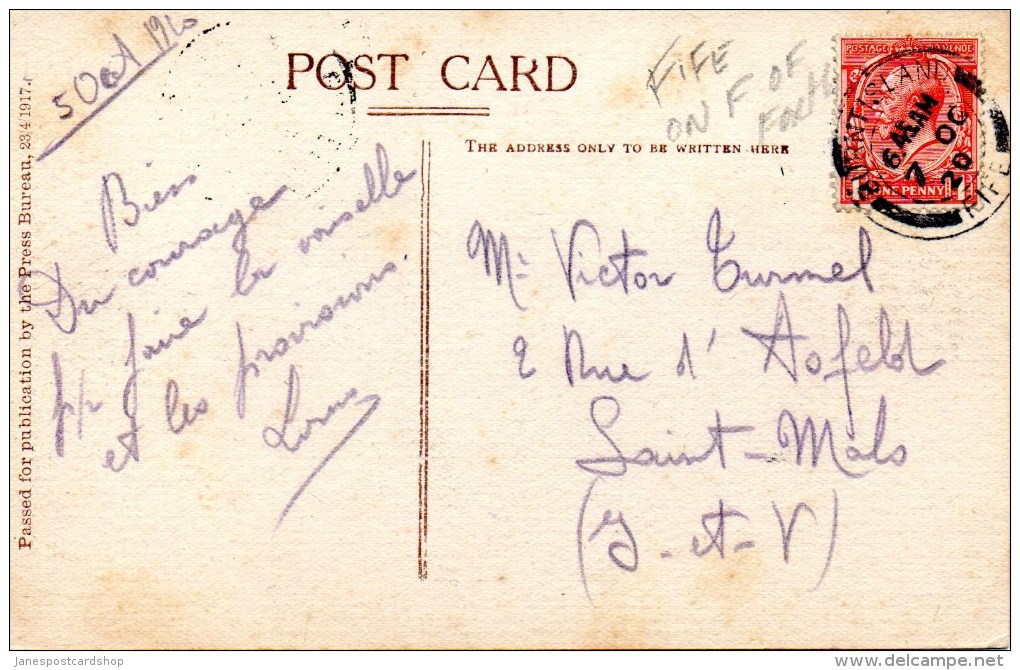 5 Oct 1920
POST CARD
FIFE
ON F OF
FORTH
THE ADDRESS ONLY TO BE WRITTEN HERE
POSTAGE REVENUE
ONE PENNY
BURNTISLAND
6.45AM
7 OC
20
FIFE
Passed for publication by the Press Bureau, 23/4/1917.
Bien
Du courage
pr faire la vaisselle
et les provisions.
Mr Victor Turmel
2 Rue d'Asfeld
Saint-Malo
(I-et-V)
janespostcardshop
delcampe.net